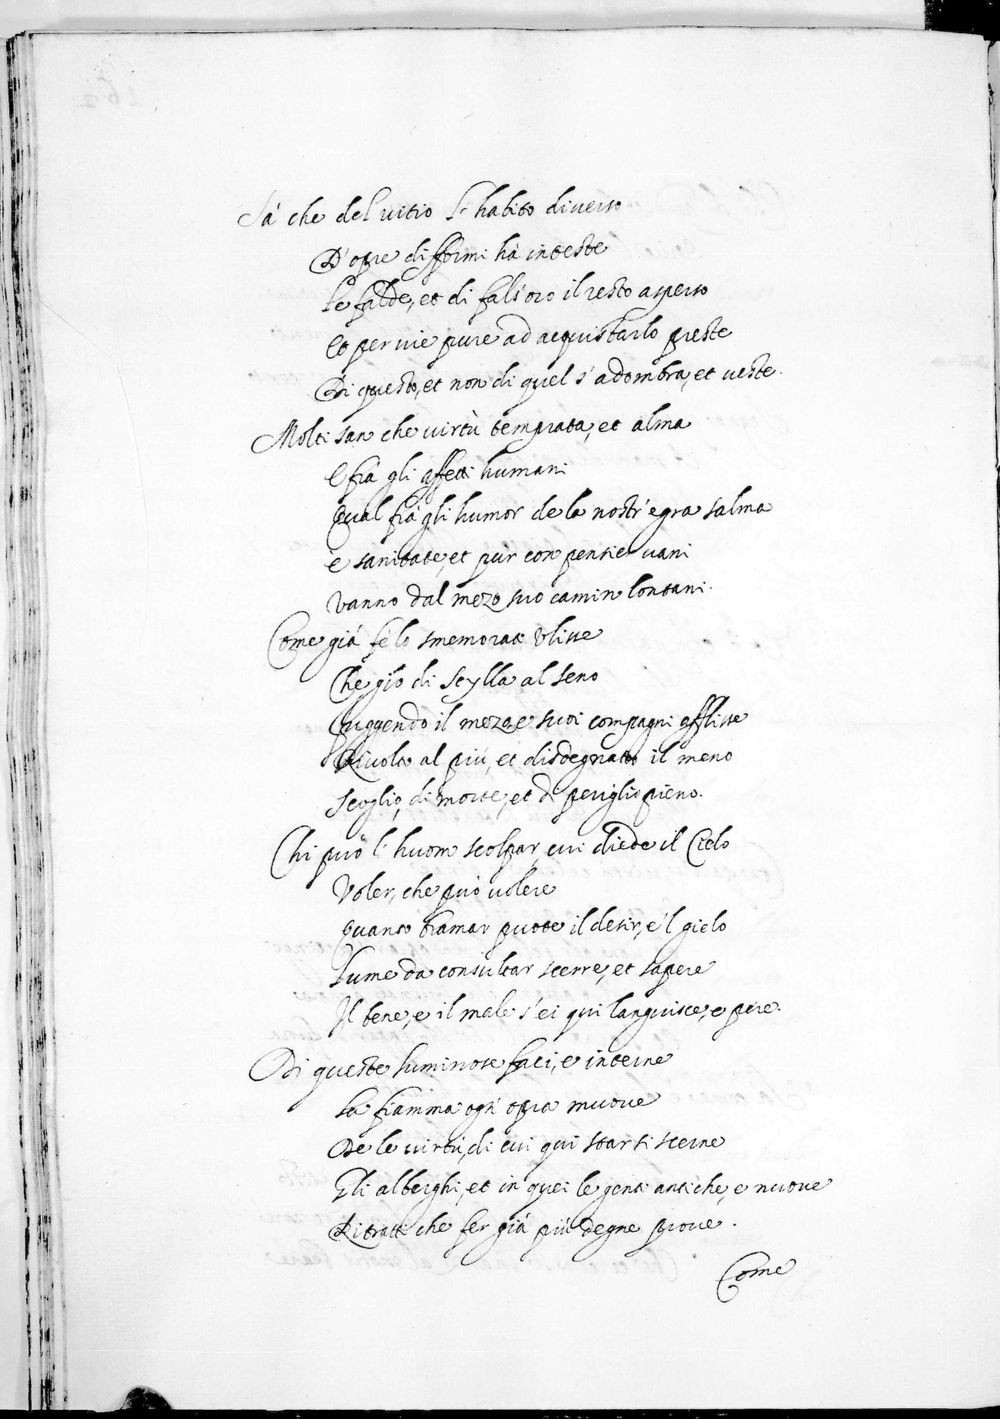 Sà che del vitio l'habito diverso
D'opre difformi hà inteste
Le falde, et di fals'oro il resto asperso
Et per vie pure ad acquistarlo preste
Di questo, et non di quel s'adombra, et veste.
Molti san che virtù temprata, et alma
E frà gli affetti humani
Qual frà gli humor de la nostr'egra salma
è sanitate, et pur con pensier vani
Vanno dal mezo suo camin lontani.
Come già fè lo smemorato Ulisse
Che gío di Scylla al seno
Fuggendo il mezo, e suoi compagni afflisse
Rivolto al più, et disdegnato il meno
Scoglio, di morte, et di periglio pieno.
Chi può l'huom scolpar, cui diede il Cielo
Voler, che può volere
Quanto bramar puote il desir, e'l gielo
Lume da consultar scerre, et sapere
Il bene, e il male s'ei qui languisce, e pere.
Di queste luminose faci, e interne
La fiamma ogn'opra muove
De le virtù, di cui qui star si scerne
Gli alberghi, et in quei le genti antiche, e nuove
Ritratti che fer già più degne prove.
Come